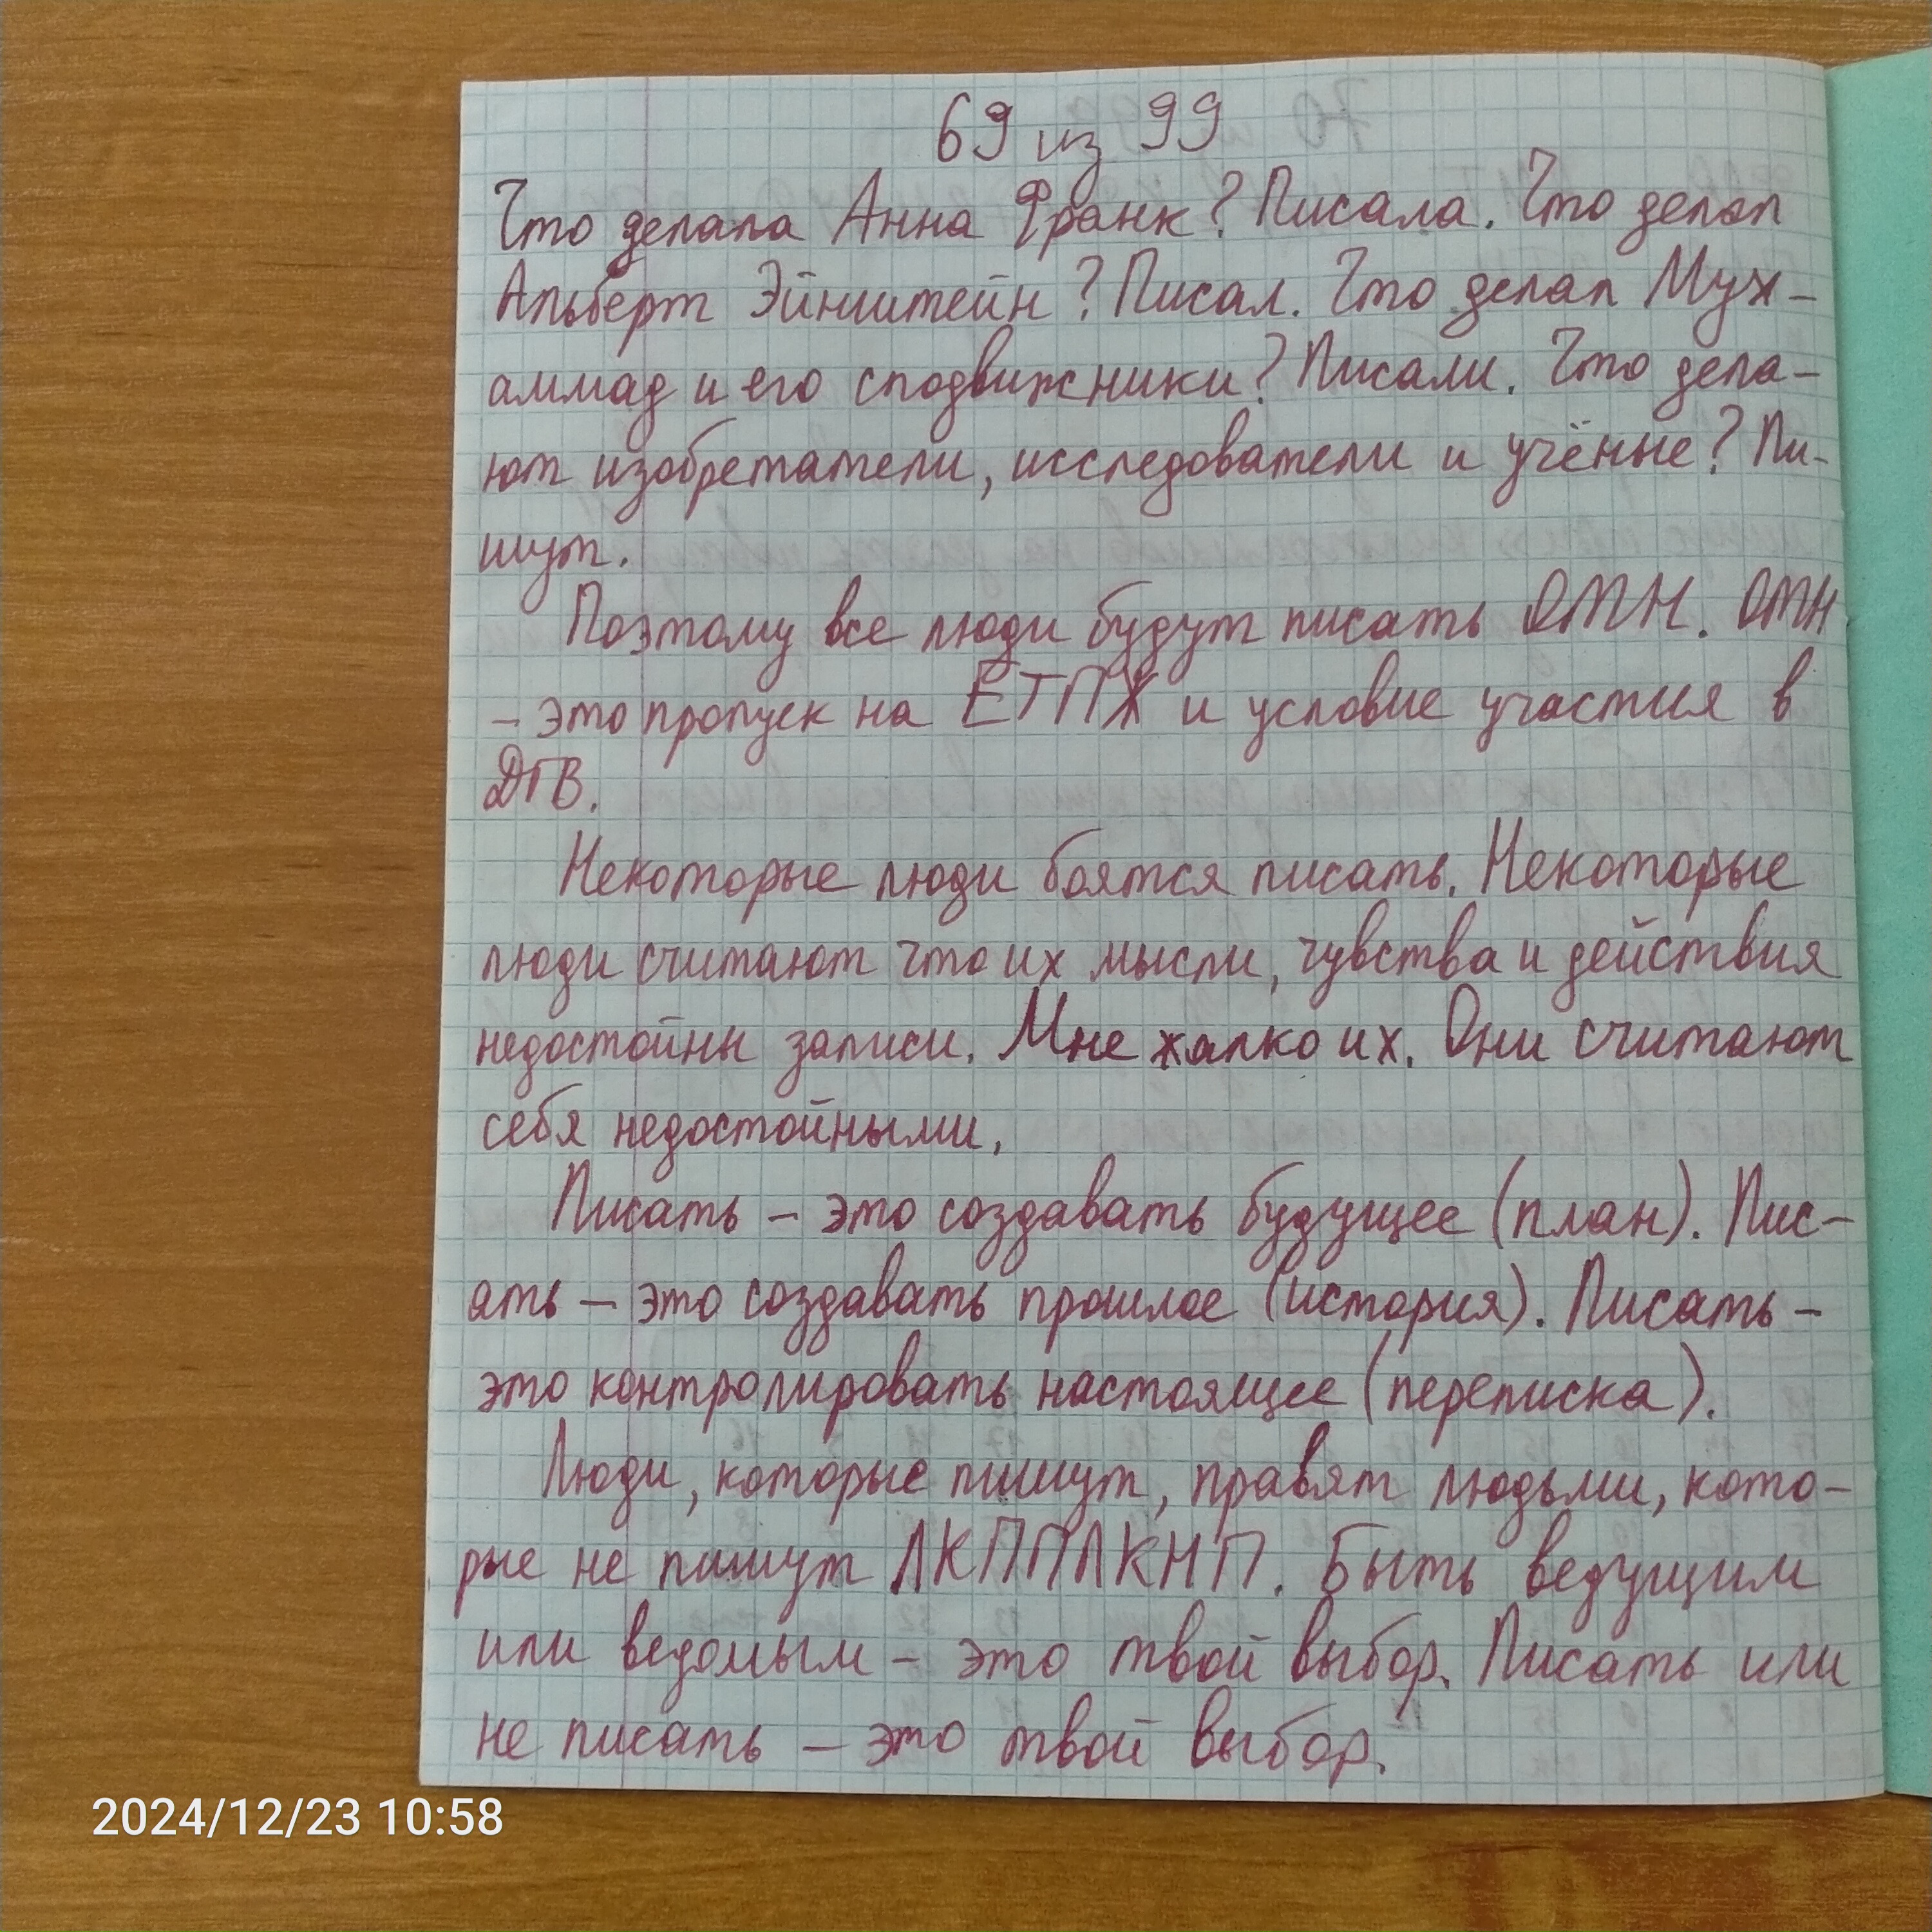 69 из 99
Что делала Анна Франк? Писала. Что делал
Альберт Эйнштейн? Писал. Что делал Мух-
аммад и его сподвижники? Писали. Что дела-
ют изобретатели, исследователи и учёные? Пи-
шут.
Поэтому все люди будут писать ОМН. ОМН
- это пропуск на ЕТПЖ и условие участия в
ДГВ.
Некоторые люди боятся писать. Некоторые
люди считают что их мысли, чувства и действия
недостойны записи. Мне жалко их. Они считают
себя недостойными.
Писать - это создавать будущее (план). Пис-
ать - это создавать прошлое (история). Писать -
это контролировать настоящее (переписка).
Люди, которые пишут, правят людьми, кото-
рые не пишут ЛКППЛКНП. Быть ведущим
или ведомым - это твой выбор. Писать или
не писать - это твой выбор.
2024/12/23 10:58